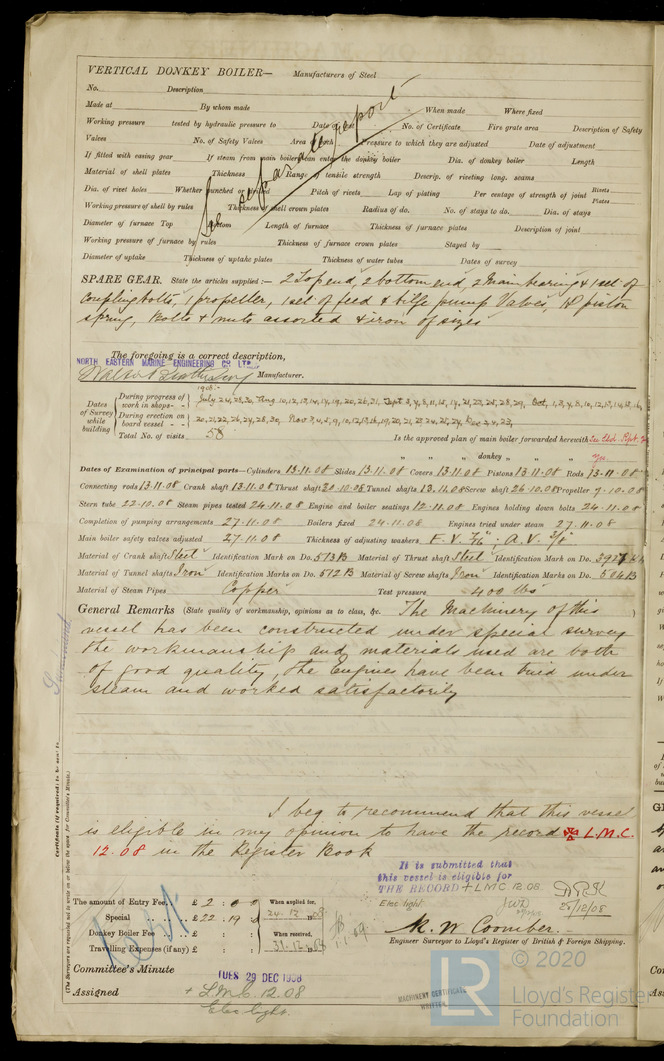 VERTICAL DONKEY BOILER— Manufacturers of Steel
No. Description
Made at By whom made When made Where fixed
Working pressure tested by hydraulic pressure to Date of test No. of Certificate Fire grate area Description of Safety
Valves No. of Safety Valves Area of each Pressure to which they are adjusted Date of adjustment
If fitted with easing gear If steam from main boilers can enter the donkey boiler Dia. of donkey boiler Length
Material of shell plates Thickness Range of tensile strength Descrip. of riveting long. seams
Dia. of rivet holes Whether punched or drilled Pitch of rivets Lap of plating Per centage of strength of joint Rivets Plates
Working pressure of shell by rules Thickness of shell crown plates Radius of do. No. of stays to do. Dia. of stays
Diameter of furnace Top Bottom Length of furnace Thickness of furnace plates Description of joint
Working pressure of furnace by rules Thickness of furnace crown plates Stayed by
Diameter of uptake Thickness of uptake plates Thickness of water tubes Dates of survey
See separate report
SPARE GEAR. State the articles supplied:— 2 Top end, 2 bottom end, 2 Main bearing & 1 set of
coupling bolts, 1 propeller, 1 set of feed & bilge pump Valves, piston
spring, Bolts & nuts assorted & iron of sizes
The foregoing is a correct description,
NORTH EASTERN MARINE ENGINEERING CO. LTD.
Manufacturer.
1908:-
Dates of Survey while building
During progress of work in shops- - July 24, 28, 30, Aug 10, 12, 13, 14, 17, 19, 20, 26, 31, Sept 3, 4, 8, 11, 15, 17, 21, 22, 25, 28, 29, Oct, 1, 3, 4, 8, 10, 12, 13, 14, 15, 16,
During erection on board vessel - - 20, 21, 22, 26, 27, 28, 30, Nov 3, 4, 5, 9, 10, 12, 13, 16, 19, 20, 21, 23, 24, 21, 27, Dec 2, 4, 23,
Total No. of visits 58
Is the approved plan of main boiler forwarded herewith See Ebd. Rpt.
" " " donkey " " Yes
Dates of Examination of principal parts—Cylinders 13.11.08 Slides 13.11.08 Covers 13.11.08 Pistons 13.11.08 Rods 13.11.08
Connecting rods 13.11.08 Crank shaft 13.11.08 Thrust shaft 20.10.08 Tunnel shafts 13.11.08 Screw shaft 26.10.08 Propeller 7.10.08
Stern tube 22.10.08 Steam pipes tested 24.11.08 Engine and boiler seatings 12.11.08 Engines holding down bolts 24.11.08
Completion of pumping arrangements 27.11.08 Boilers fixed 24.11.08 Engines tried under steam 27.11.08
Main boiler safety valves adjusted 27.11.08 Thickness of adjusting washers F.V. A.V.
Material of Crank shaft Steel Identification Mark on Do. 573B Material of Thrust shaft Steel Identification Mark on Do.
Material of Tunnel shafts Iron Identification Marks on Do. 512B Material of Screw shafts Iron Identification Marks on Do. 504B
Material of Steam Pipes Copper Test pressure 400 lbs
General Remarks (State quality of workmanship, opinions as to class, &c. The Machinery of this
vessel has been constructed under special survey
the workmanship and materials used are both
of good quality, the Engines have been tried under
steam and worked satisfactorily
I beg to recommend that this vessel
is eligible in my opinion to have the record + L.M.C.
12.08 in the Register Book
It is submitted that
this vessel is eligible for
THE RECORD + LMC 12.08
Elec light.
28/12/08
Certificate (if required) to be sent to
(The Surveyors are requested not to write on or below the space for Committee's Minute.)
Sunderland
The amount of Entry Fee.. £ 2 : 0 : 0 When applied for,
Special .. £22 : 19 : 0 24.12.08
Donkey Boiler Fee .. £ : : When received,
Travelling Expenses (if any) £ : : 31.12.08
1.1.09.
M. W. Coomber.
Engineer Surveyor to Lloyd's Register of British & Foreign Shipping.
Committee's Minute TUES 29 DEC 1908
Assigned + L.M.C. 12.08
Elec light.
MACHINERY CERTIFICATE
WRITTEN
LR
© 2020
Lloyd's Register
Foundation